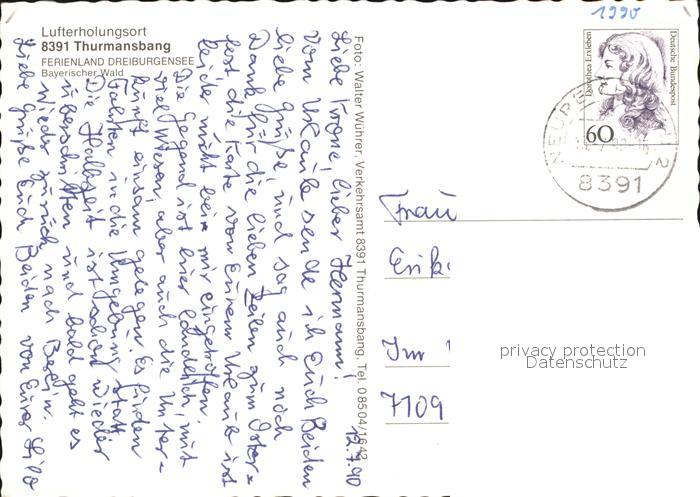 1990
Lufterholungsort
8391 Thurmansbang
FERIENLAND DREIBURGENSEE
Bayerischer Wald
Foto: Walter Wührer, Verkehrsamt 8391 Thurmansbang, Tel. 08504/1642
Deutsche Bundespost
Dorothea Erxleben
60
8391
2
12.7.90
Liebe Krone, lieber Hermann!
Vom Urlaub sende ich Euch Beiden
liebe Grüße, und sag auch noch
Dank für die lieben Zeilen zum Oster=
fest die Karte von Eurem Urlaub ist
leider nicht bei mir eingetroffen.
Die Gegend ist hier ländlich, mit
viel Wiesen, aber auch die Unter=
kunft einsam gelegen. Es finden
Fahrten in die Umgebung statt.
Die Halbzeit ist schon wieder
überschritten und bald geht es
wieder zurück nach Berlin.
Liebe Grüße Euch Beiden von Eurer
Frau
Im
7109
privacy protection
Datenschutz